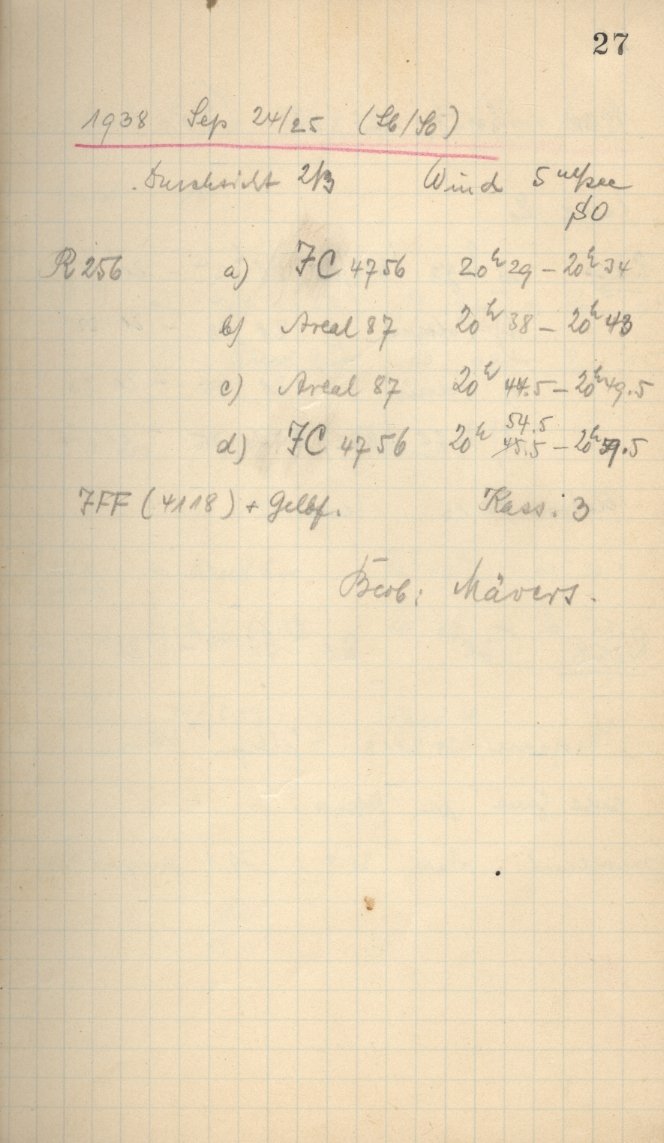 27
1938 Sep 24/25 (Sb/So)
Durchsicht 2/3 Wind 5 m/sec
SO
R 256 a) IC 4756 20h 29 – 20h 34
b) Areal 87 20h 38 – 20h 43
c) Areal 87 20h 44.5 – 20h 49.5
54.5
d) IC 4756 20h 45.5 – 20h 59.5
IFF (4118) + Gelbf. Kass. 3
Beob: Mävers.